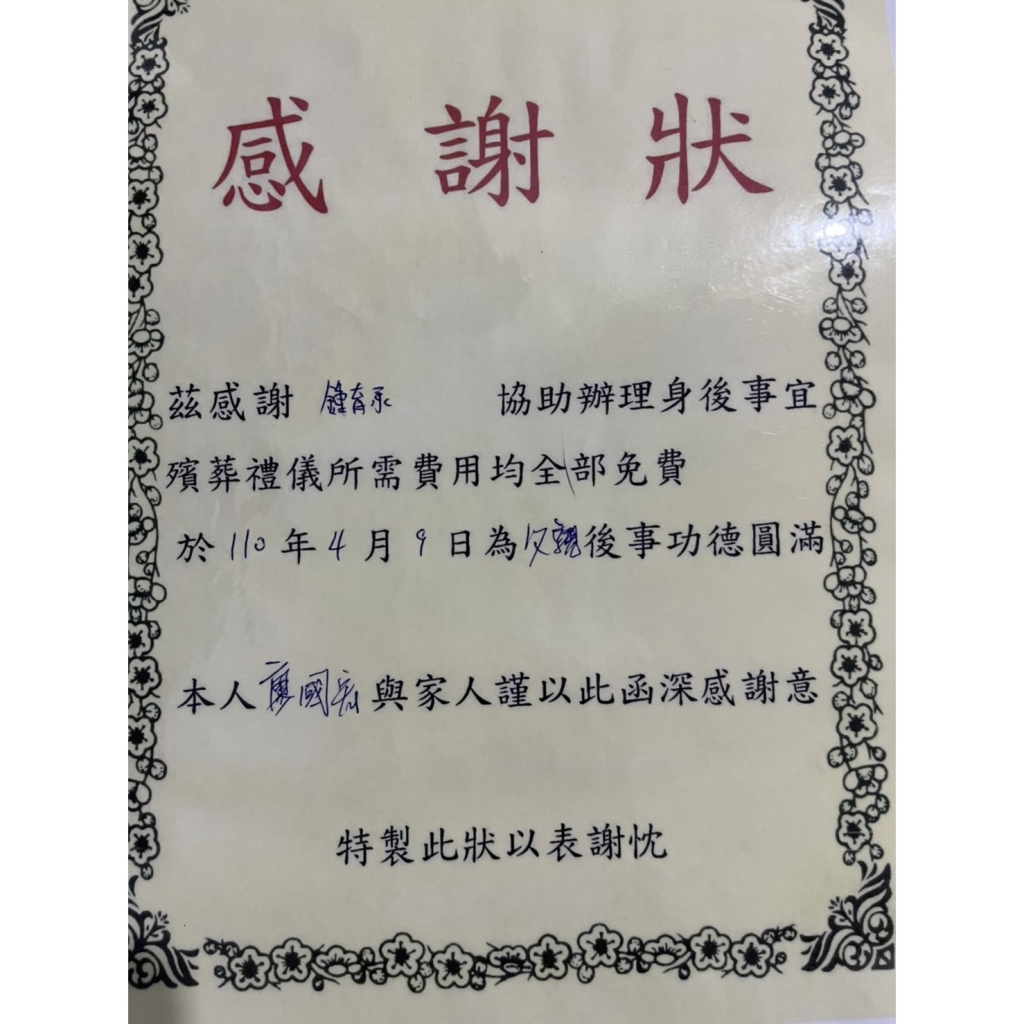 感謝狀
茲感謝 鍾育承 協助辦理身後事宜
殯葬禮儀所需費用均全部免費
於110年4月9日為父親後事功德圓滿
本人廖國宏與家人謹以此函深感謝意
特製此狀以表謝忱